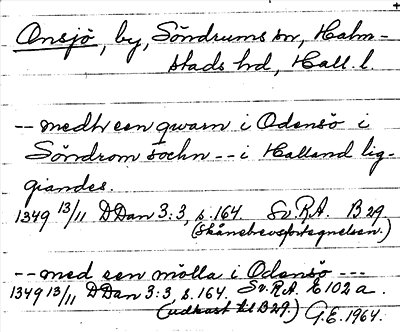 Onsjö, by, Söndrums sn, Halm-
stads hd, Hall. l
-- medh een qwarn i Odensö i
Söndrom sochn -- i Halland lig-
giandes.
1349 13/11 DDan 3:3, s. 164. Sv.R.A. B 29
(Skånebrevsförtegnelsen.)
-- med een mölla i Odensö ---
1349 13/11 DDan 3:3 s. 164. Sv.R.A. E 102 a.
(udkast til B 29) G.E. 1964.